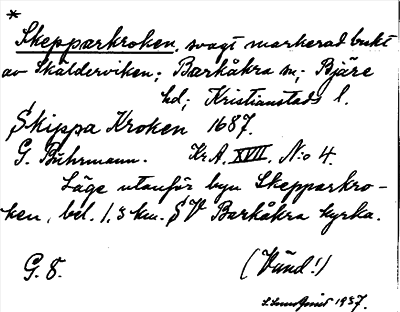 *
Skepparkroken, svagt markerad bukt
av Skälderviken; Barkåkra sn; Bjäre
hd; Kristianstads l.
Skippa Kroken 1687.
G. Buhrmann. Kr.A. XVII. N:o 4.
Läge utanför byn Skepparkro-
ken, bel. 1,3 km. SV Barkåkra kyrka.
G. 8. (Vänd!)
1937.